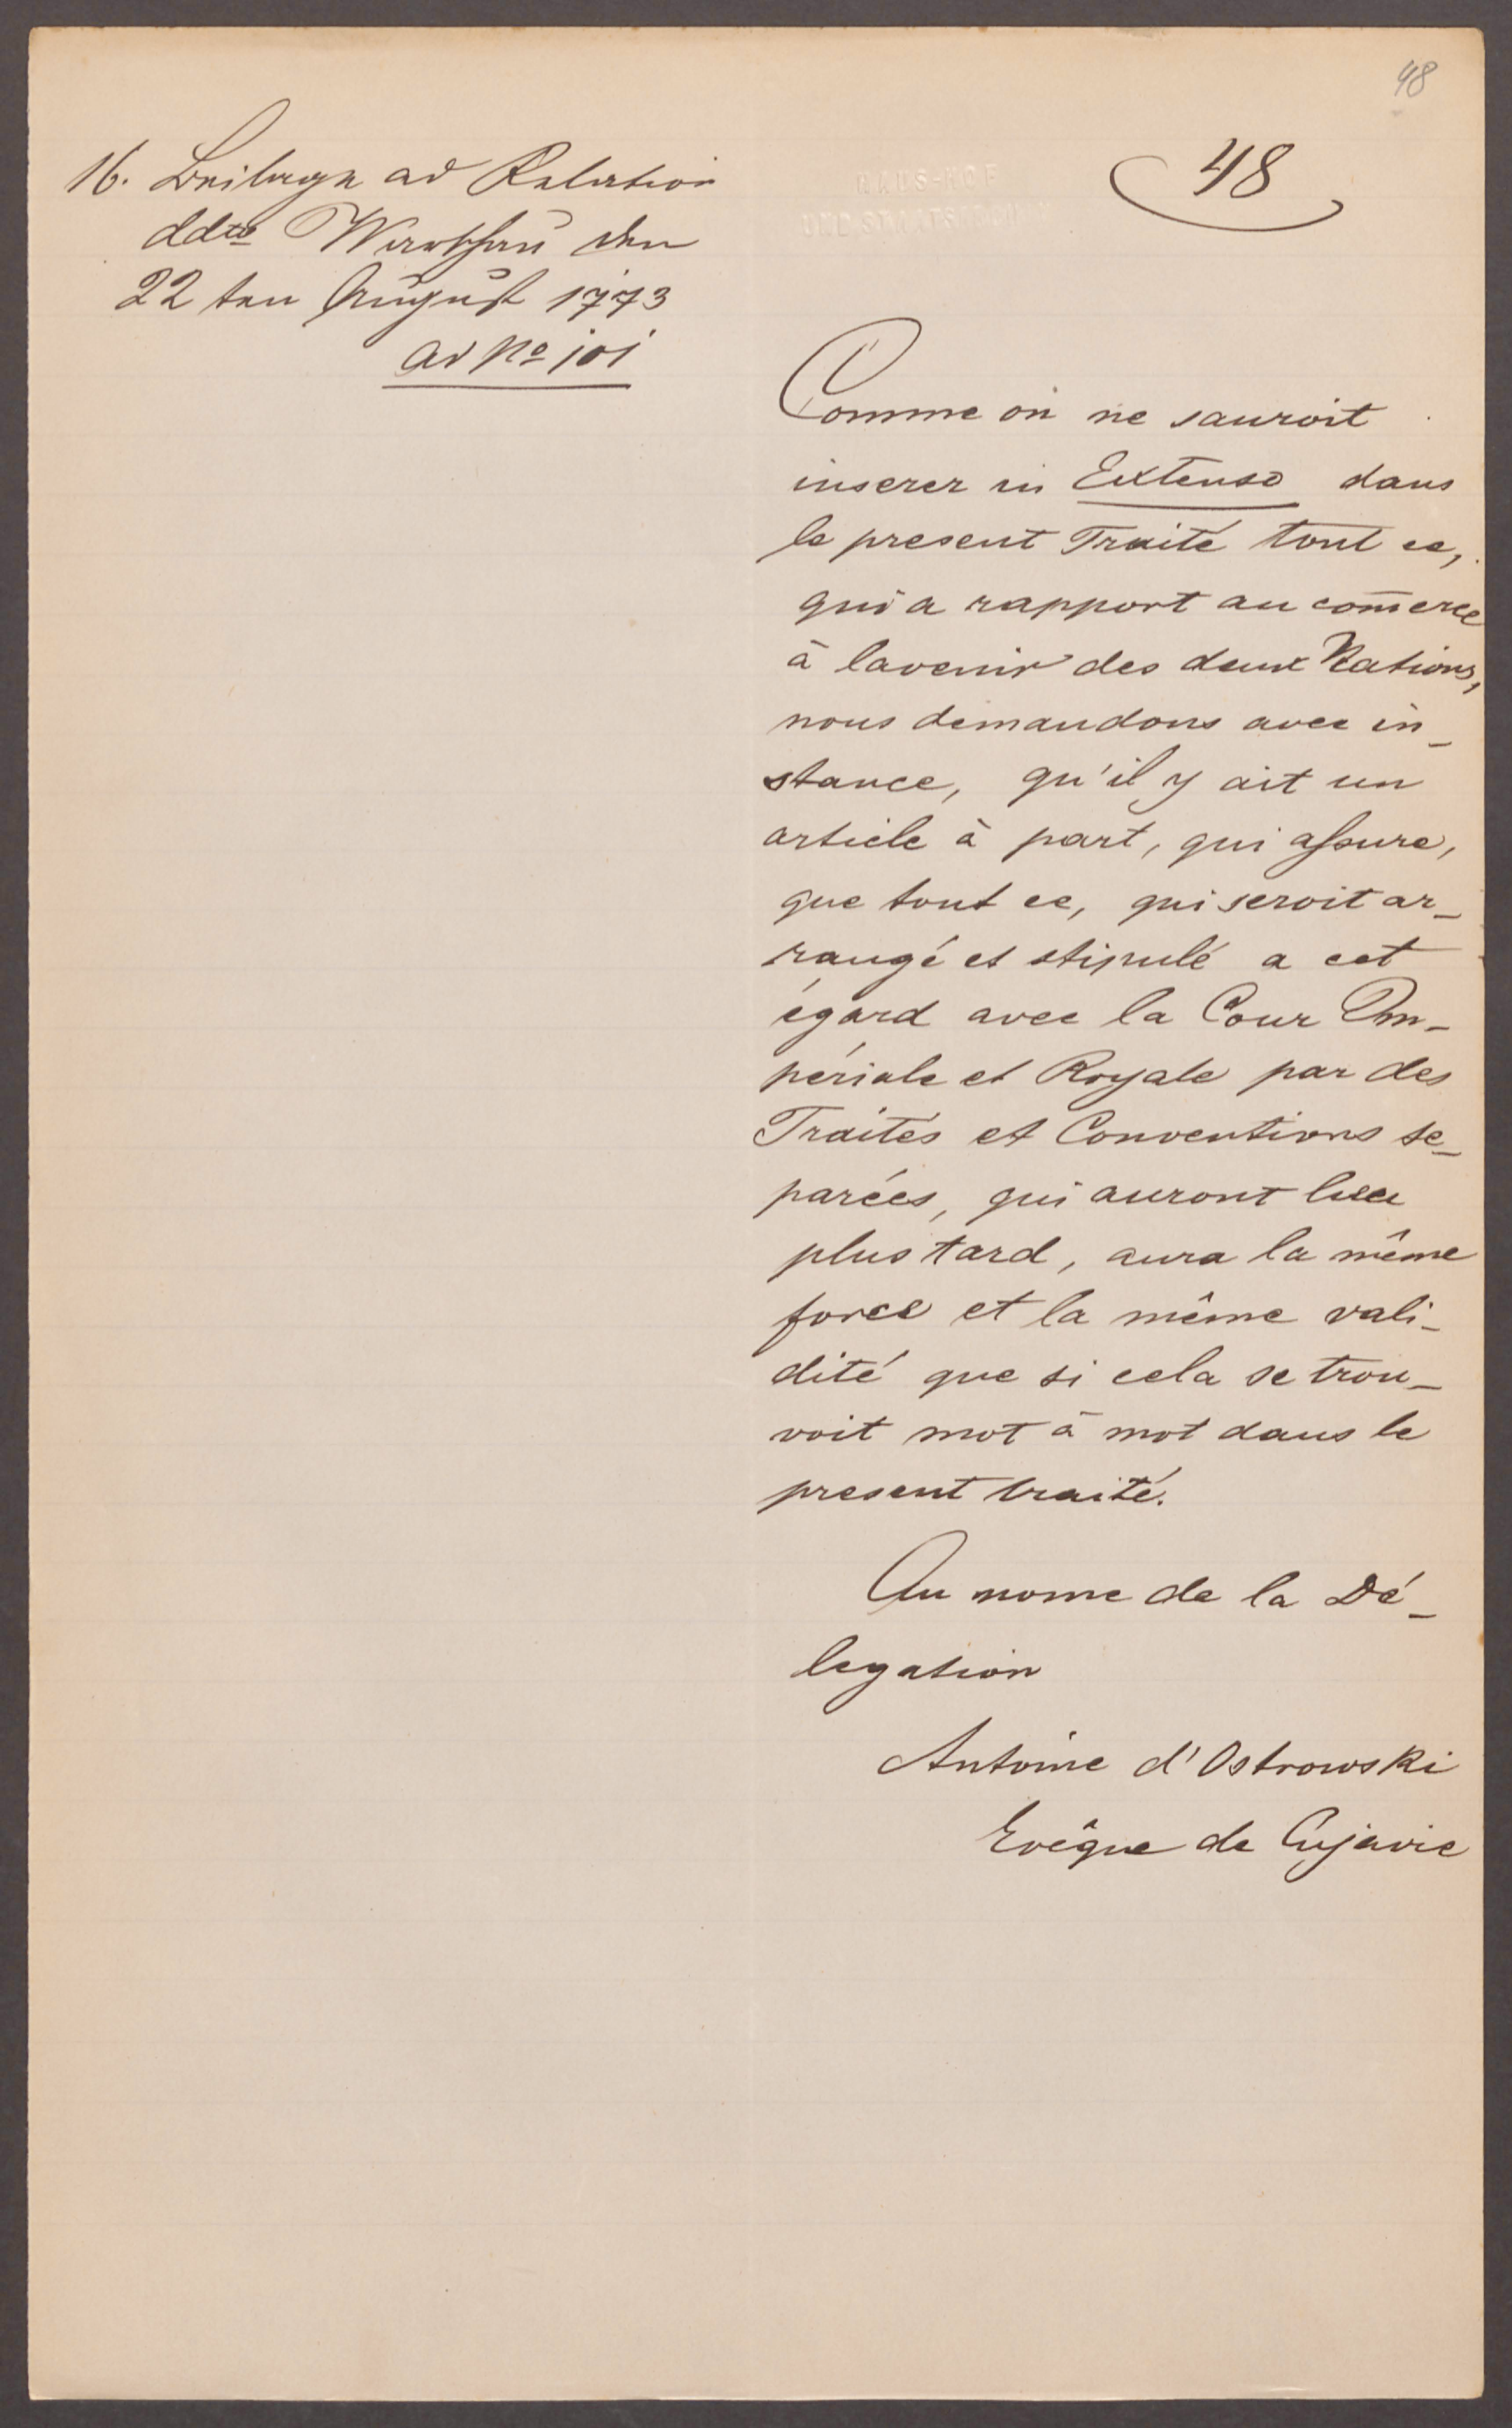 48
48
16. Beilage ad Relation
ddto Warschau den
22 ten August 1773
ad No 101
HAUS-HOF
UND STAATSARCHIV
Comme on ne sauroit
inserer in Extenso dans
le present Traité tout ce,
qui a rapport au com̄erce
à lavenir des deux Nations,
nous demandons avec in_
stance, qu'il y ait un
article à part, qui assure,
que tout ce, qui seroit ar_
rangé et stipulé a cet
égard avec la Cour Im_
périale et Royale par des
Traités et Conventions se_
parées, qui auront lieu
plus tard, aura la même
force et la même vali_
dité que si cela se trou_
voit mot à mot dans le
present traité.
Au nome de la Dé_
legation
Antoine d'Ostrowski
Evêque de Cujavie